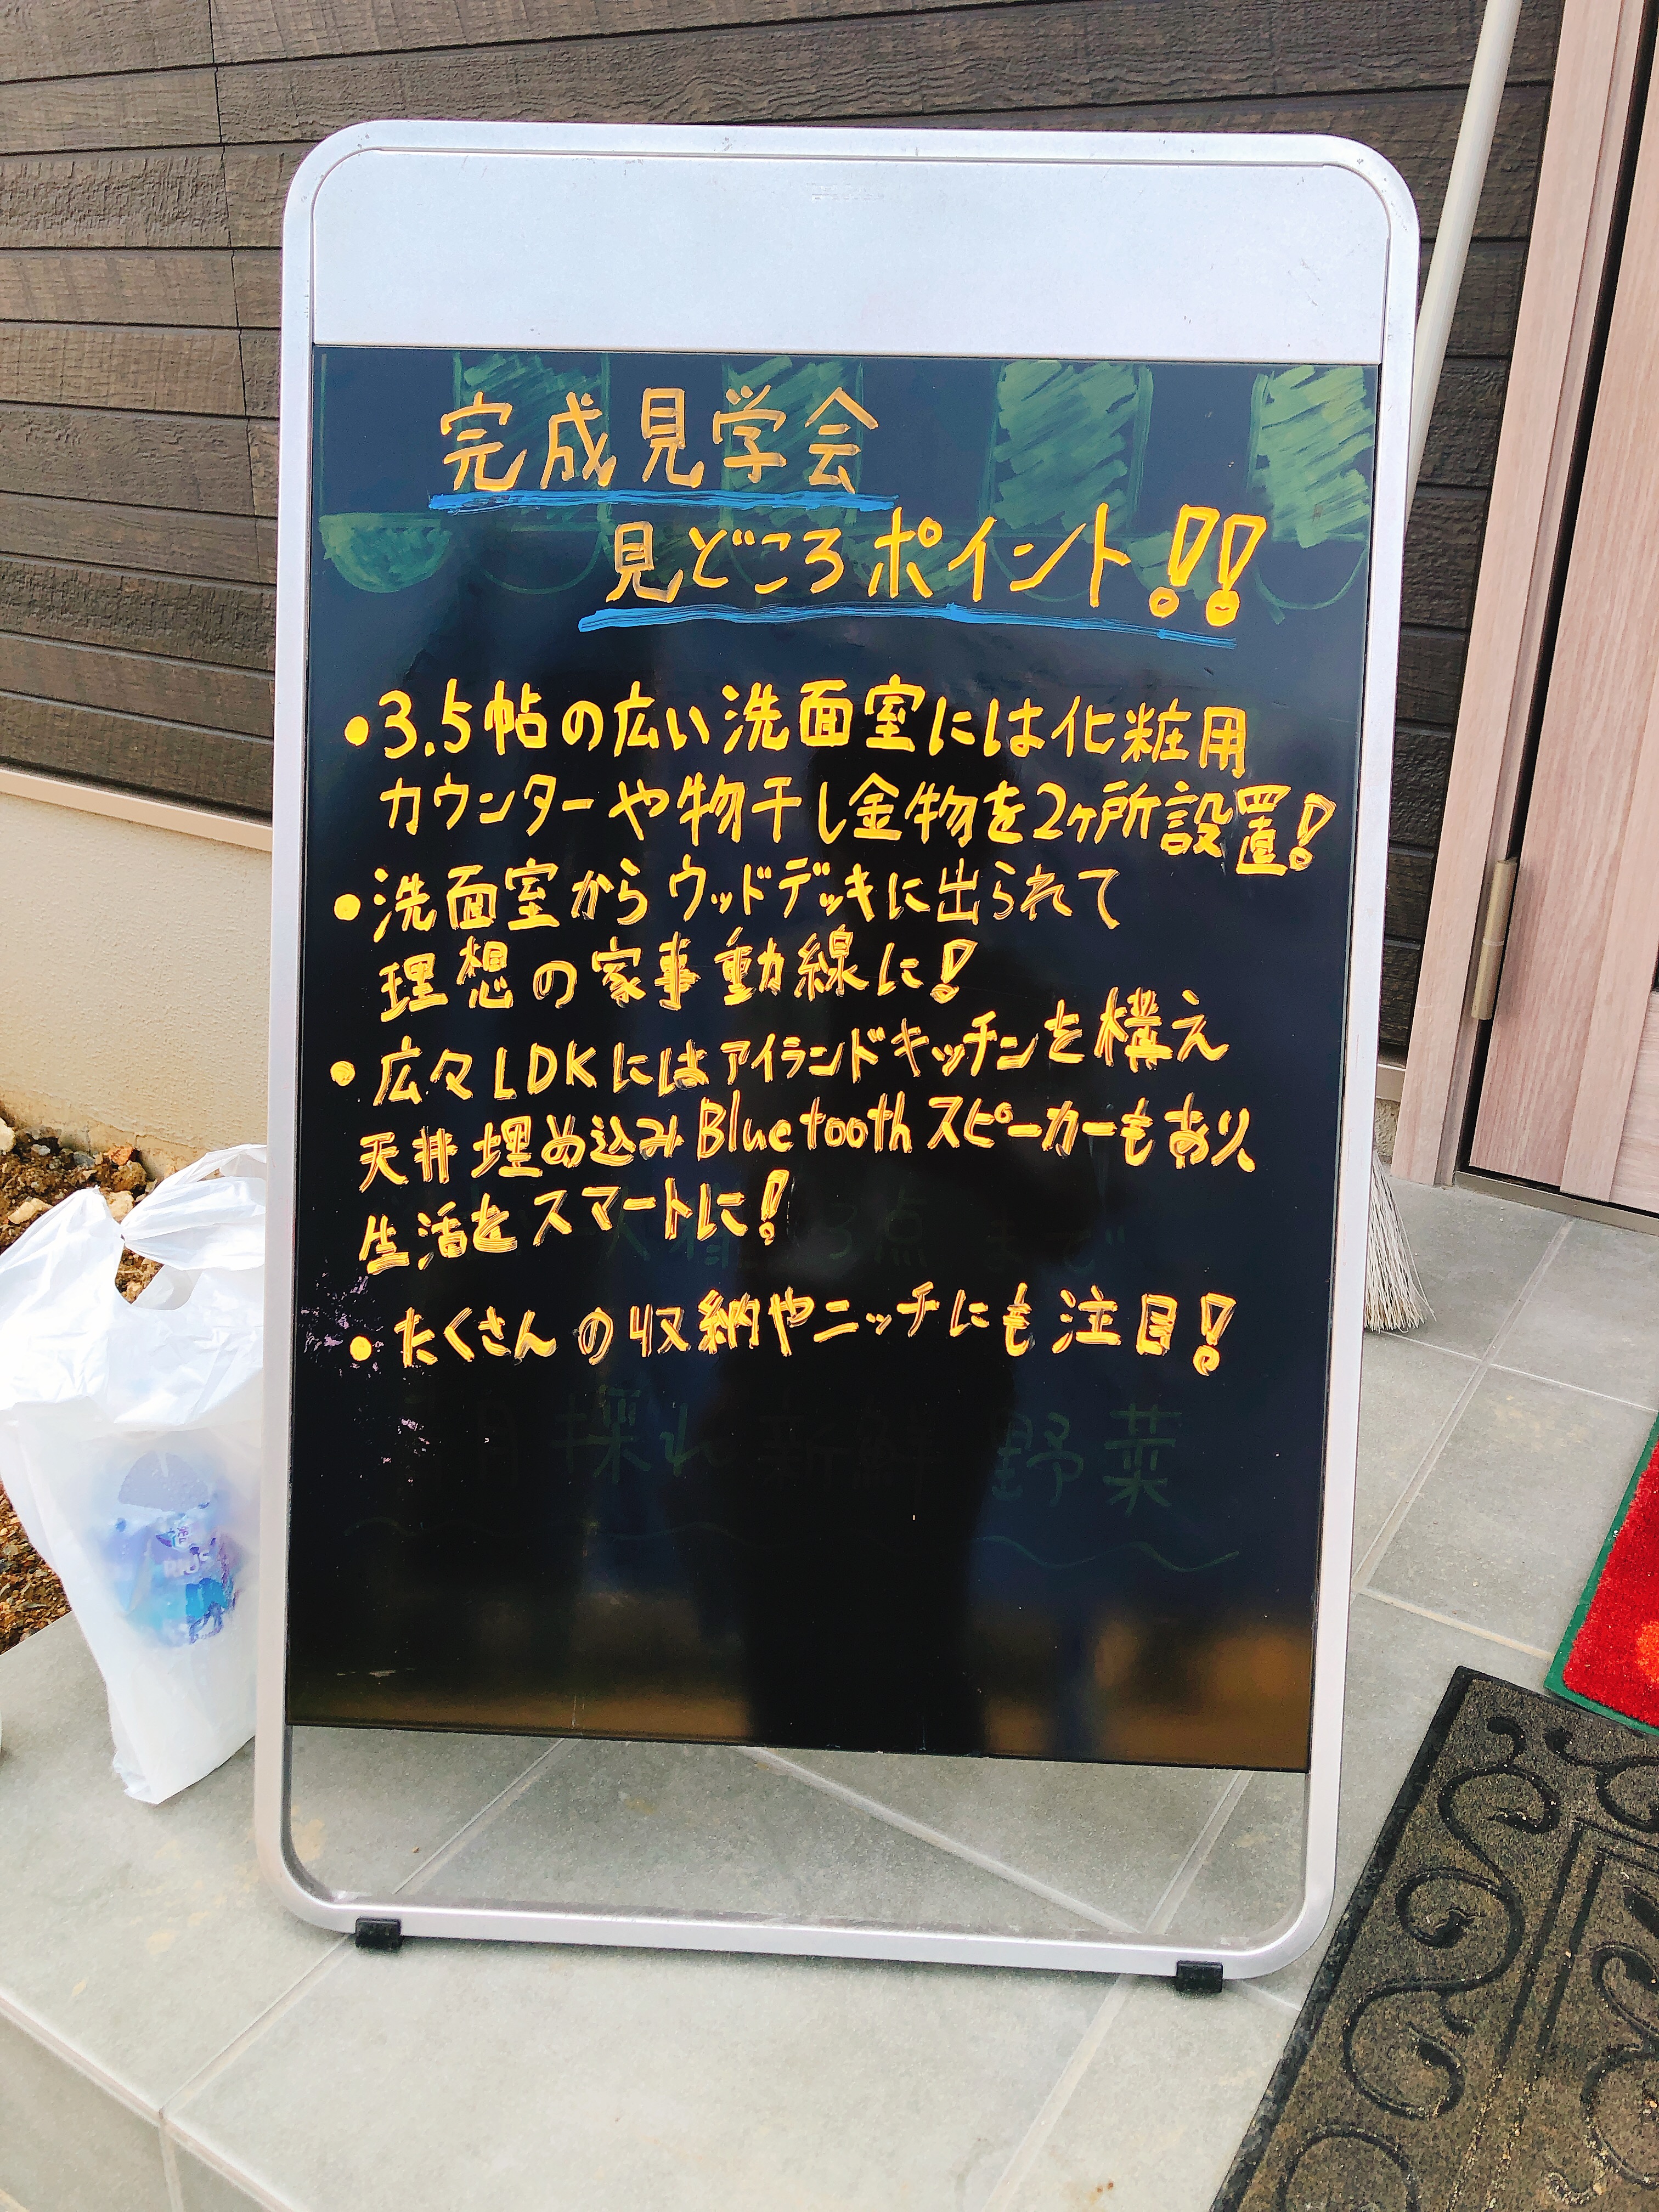 完成見学会
見どころポイント!!
•3.5帖の広い洗面室には化粧用
カウンターや物干し金物を2ヶ所設置!
•洗面室からウッドデッキに出られて
理想の家事動線に!
•広々LDKにはアイランドキッチンを構え
天井埋め込みBluetoothスピーカーもあり、
生活をスマートに!
3点まで
•たくさんの収納やニッチにも注目!
朝採れ新鮮野菜